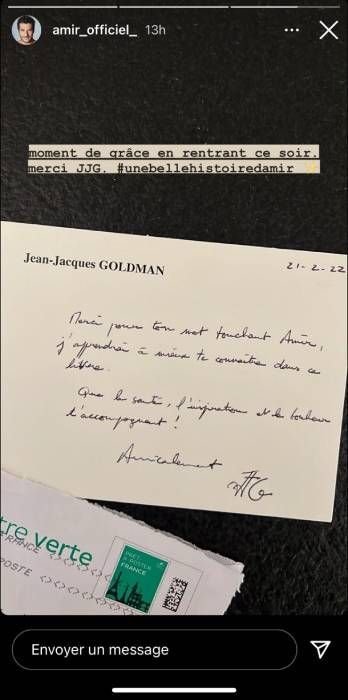 amir_officiel_ 13h
moment de grâce en rentrant ce soir.
merci JJG. #unebellehistoiredamir
Jean-Jacques GOLDMAN
21-2-22
Merci pour ton mot touchant Amir,
j'apprendrai à mieux te connaître dans ce
livre.
Que la santé, l'inspiration et le bonheur
t'accompagnent !
Amicalement
JJG
tre verte
FRANCE
POSTE
PRÊT
À POSTER
FRANCE
Envoyer un message